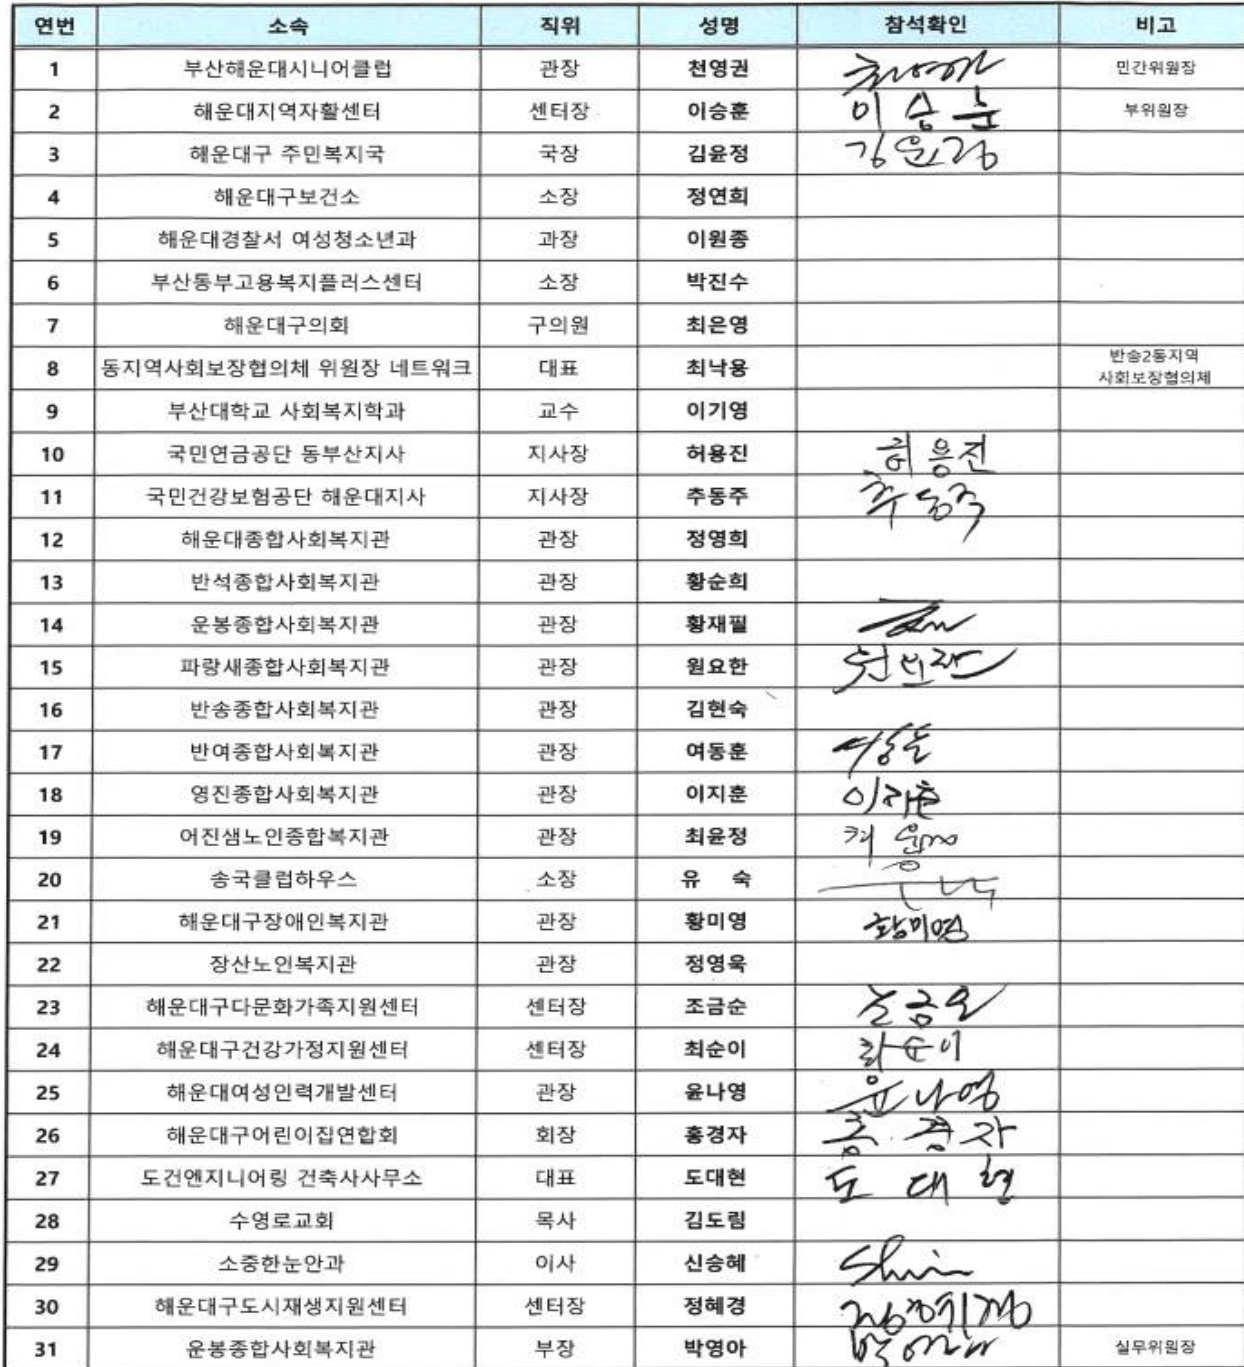 연번 소속 직위 성명 참석확인 비고
1 부산해운대시니어클럽 관장 천영권 민간위원장
2 해운대지역자활센터 센터장 이승훈 이승훈 부위원장
3 해운대구 주민복지국 국장 김윤정 김윤정
4 해운대구보건소 소장 정연희
5 해운대경찰서 여성청소년과 과장 이원종
6 부산동부고용복지플러스센터 소장 박진수
7 해운대구의회 구의원 최은영
8 동지역사회보장협의체 위원장 네트워크 대표 최낙용 반송2동지역
사회보장협의체
9 부산대학교 사회복지학과 교수 이기영
10 국민연금공단 동부산지사 지사장 허용진 허용진
11 국민건강보험공단 해운대지사 지사장 추동주 추동주
12 해운대종합사회복지관 관장 정영희
13 반석종합사회복지관 관장 황순희
14 운봉종합사회복지관 관장 황재필
15 파랑새종합사회복지관 관장 원요한
16 반송종합사회복지관 관장 김현숙
17 반여종합사회복지관 관장 여동훈
18 영진종합사회복지관 관장 이지훈 이지훈
19 어진샘노인종합복지관 관장 최윤정
20 송국클럽하우스 소장 유 숙
21 해운대구장애인복지관 관장 황미영 황미영
22 장산노인복지관 관장 정영욱
23 해운대구다문화가족지원센터 센터장 조금순 조금순
24 해운대구건강가정지원센터 센터장 최순이 최순이
25 해운대여성인력개발센터 관장 윤나영 윤나영
26 해운대구어린이집연합회 회장 홍경자 홍경자
27 도건엔지니어링 건축사사무소 대표 도대현 도대현
28 수영로교회 목사 김도림
29 소중한눈안과 이사 신승혜 Shin
30 해운대구도시재생지원센터 센터장 정혜경
31 운봉종합사회복지관 부장 박영아 실무위원장